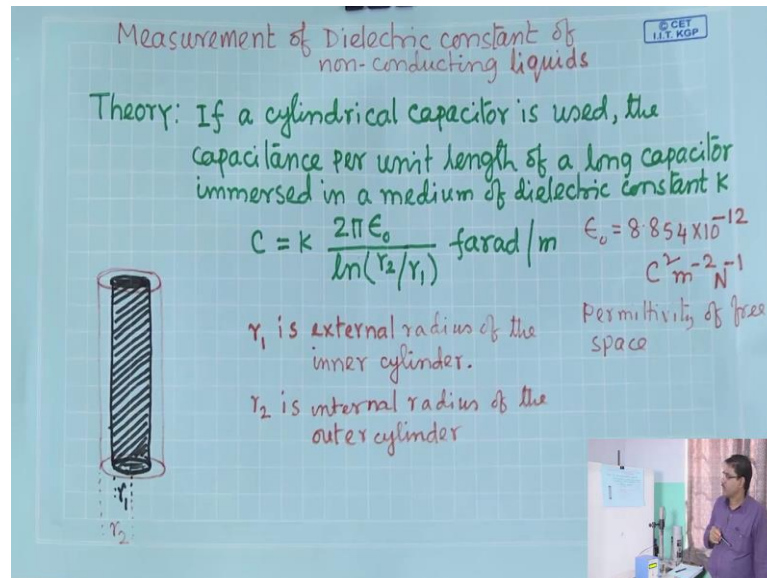 Measurement of Dielectric constant of
non-conducting liquids
© CET
I.I.T. KGP
Theory: If a cylindrical capacitor is used, the
capacitance per unit length of a long capacitor
immersed in a medium of dielectric constant K
C = K 2πϵ₀ / ln(r₂/r₁) farad/m
ϵ₀ = 8.854×10⁻¹²
C² m⁻² N⁻¹
Permittivity of free
space
r₁ is external radius of the
inner cylinder.
r₂ is internal radius of the
outer cylinder
r₁
r₂